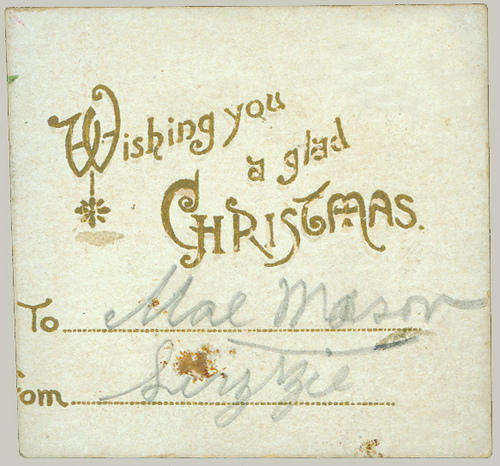 Wishing you
a glad
CHRISTMAS.
To Mae Mason
om